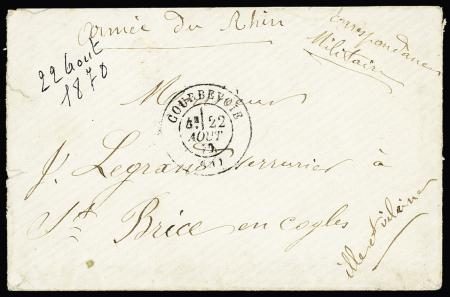 armée du Rhin
correspondance
Militaire
22 Aout
1870
Monsieur
COURBEVOIE
22
AOUT
J. Legrand serrurier à
St Brice en cogles
ille et vilaine